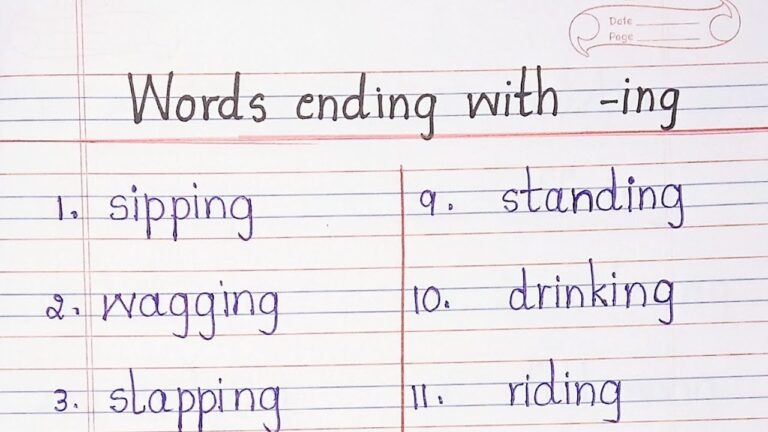 Date
Page
Words ending with -ing
1. sipping
2. wagging
3. slapping
9. standing
10. drinking
11. riding